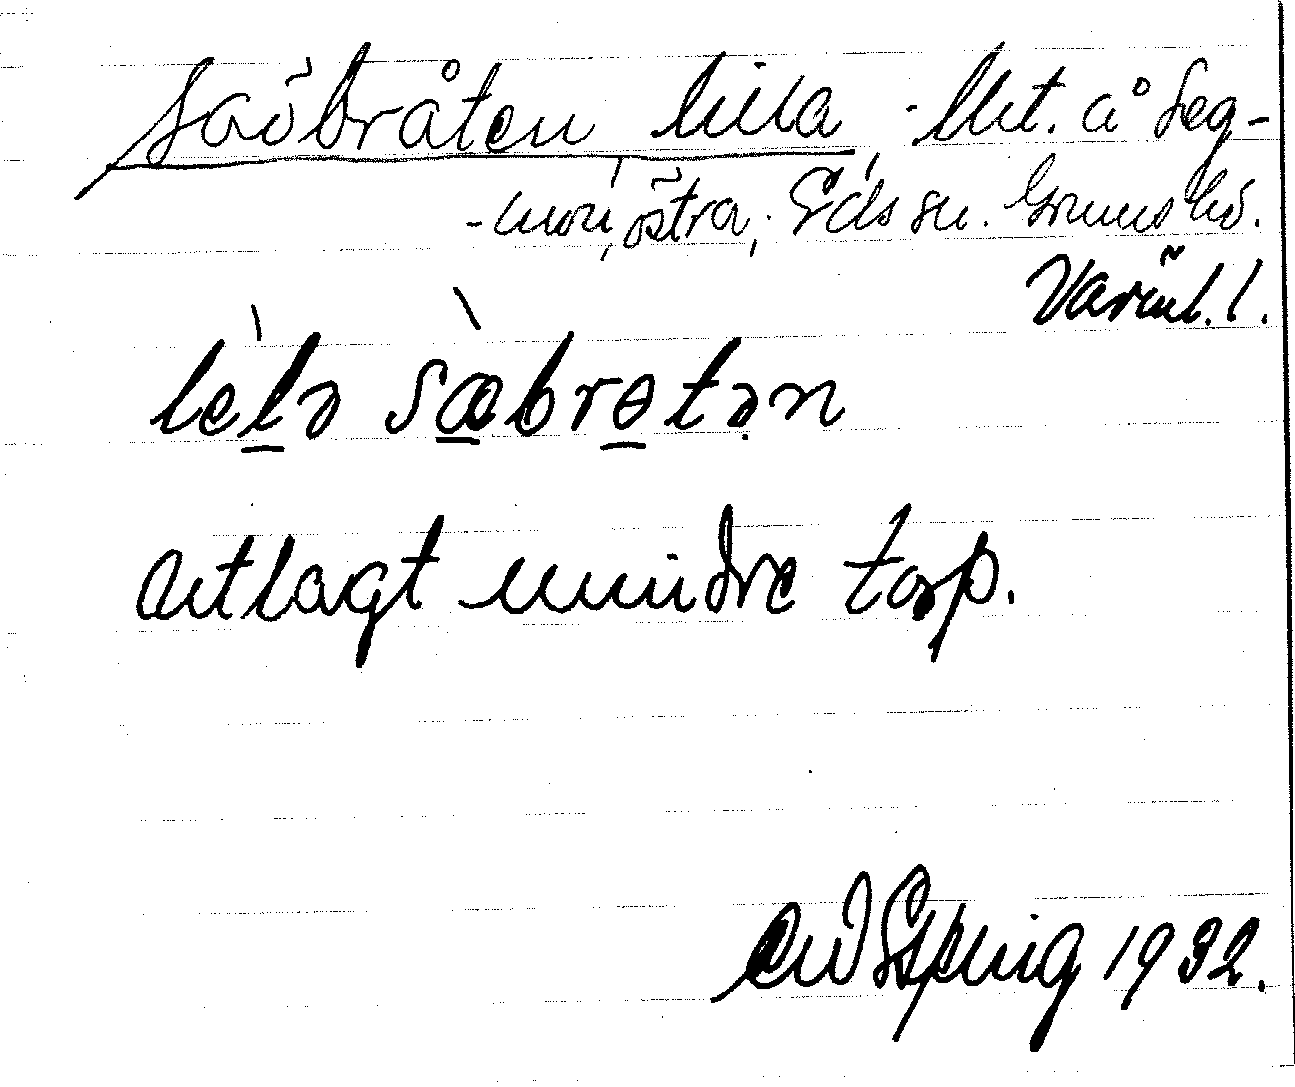 Saöbråten lilla, - Utt. å Seg-
-mon, östra, Eds sn. Grums hd.
Värml. l.
lèlə sæ̀brɵtən
Utlagt mindre torp.
1932.